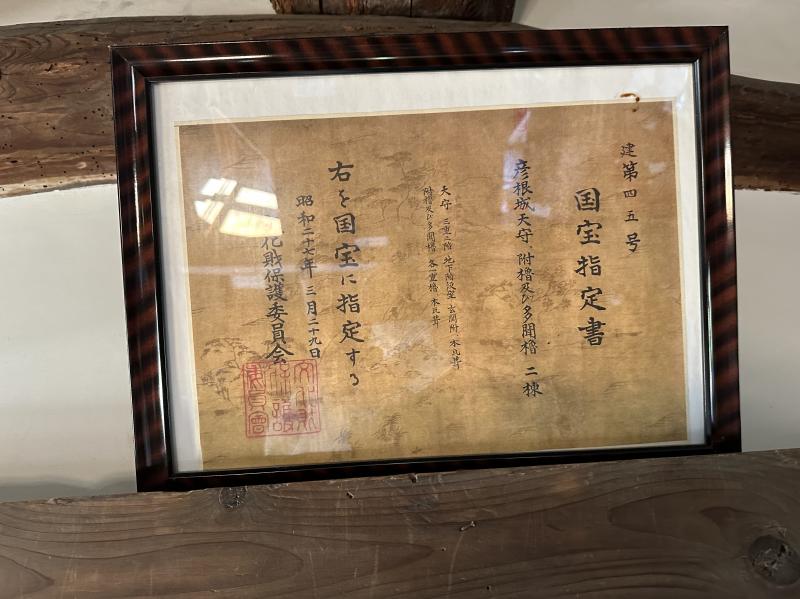 建第四五号
国宝指定書
彦根城天守、附櫓及び多聞櫓 二棟
天守 三重三階、地下階段室、玄関附、本瓦葺
附櫓及び多聞櫓 各一重櫓、本瓦葺
右を国宝に指定する
昭和二十七年 三月二十九日
化財保護委員会